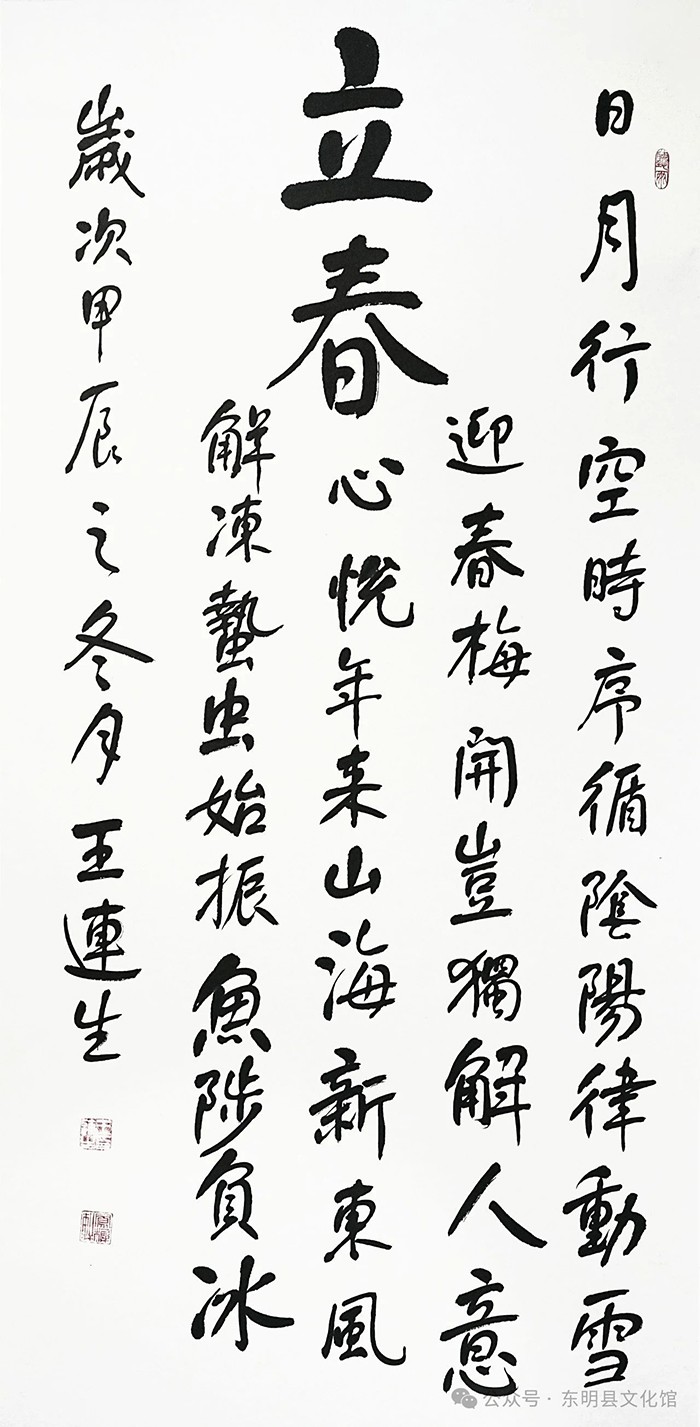 立春
日月行空時序循陰陽律動雪
迎春梅開豈獨解人意
心悅年来山海新東風
解凍蟄虫始振魚陟負冰
歲次甲辰之冬月王連生
公众号·东明县文化馆